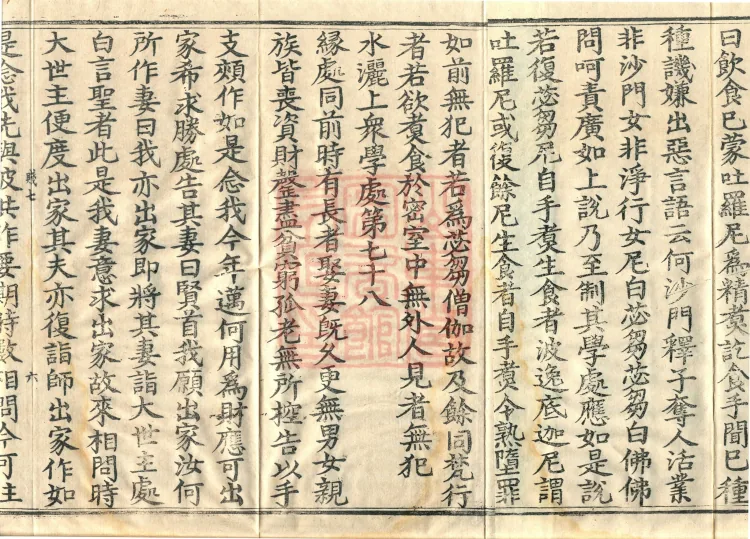 曰飲食已蒙吐羅尼為精煑訖食手聞已種
種譏嫌出惡言語云何沙門釋子奪人活業
非沙門女非淨行女尼白苾芻苾芻白佛佛
問呵責廣如上說乃至制其學處應如是說
若復苾芻尼自手煑生食者波逸底迦尼謂
吐羅尼或復餘尼生食者自手煑令熟墮罪
如前無犯者若為苾芻僧伽故及餘同梵行
者若欲煑食於密室中無外人見者無犯
水灑上衆學處第七十八
緣處同前時有長者娶妻旣久更無男女親
族皆喪資財罄盡貧窮孤老無所控告以手
支頰作如是念我今年邁何用為財應可出
家希求勝處告其妻曰賢首我願出家汝何
所作妻曰我亦出家即將其妻詣大世主處
白言聖者此是我妻意求出家故來相問時
大世主便度出家其夫亦復詣師出家作如
職七 六
是念我先與彼共作要期時數相問今可往